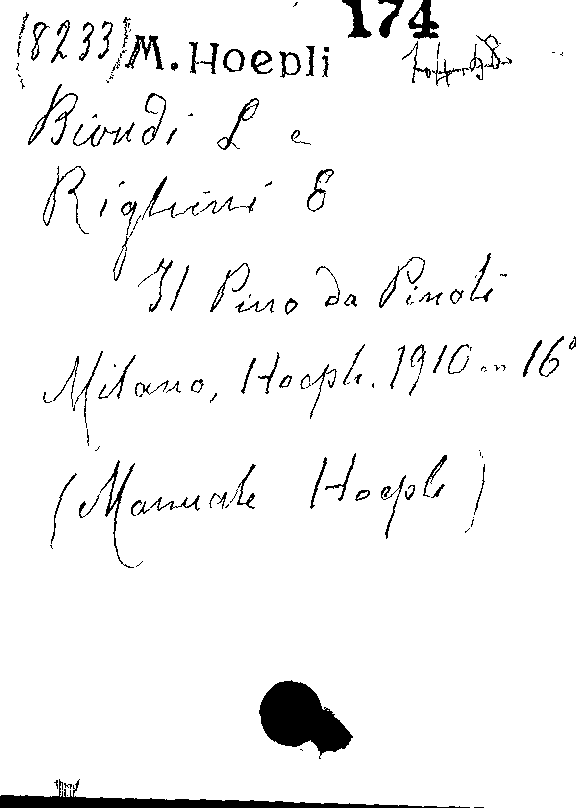 174
(8233) M. Hoepli
Biondi L e
Righini E
Il Pino da Pinoli
Milano, Hoepli. 1910 in 16°
(Manuale Hoepli)